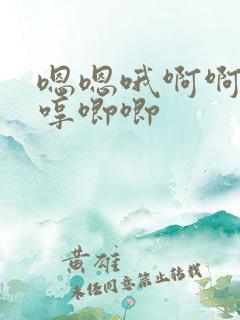 嗯嗯哦啊啊
哼唧唧
黄雄
未经同意禁止转载